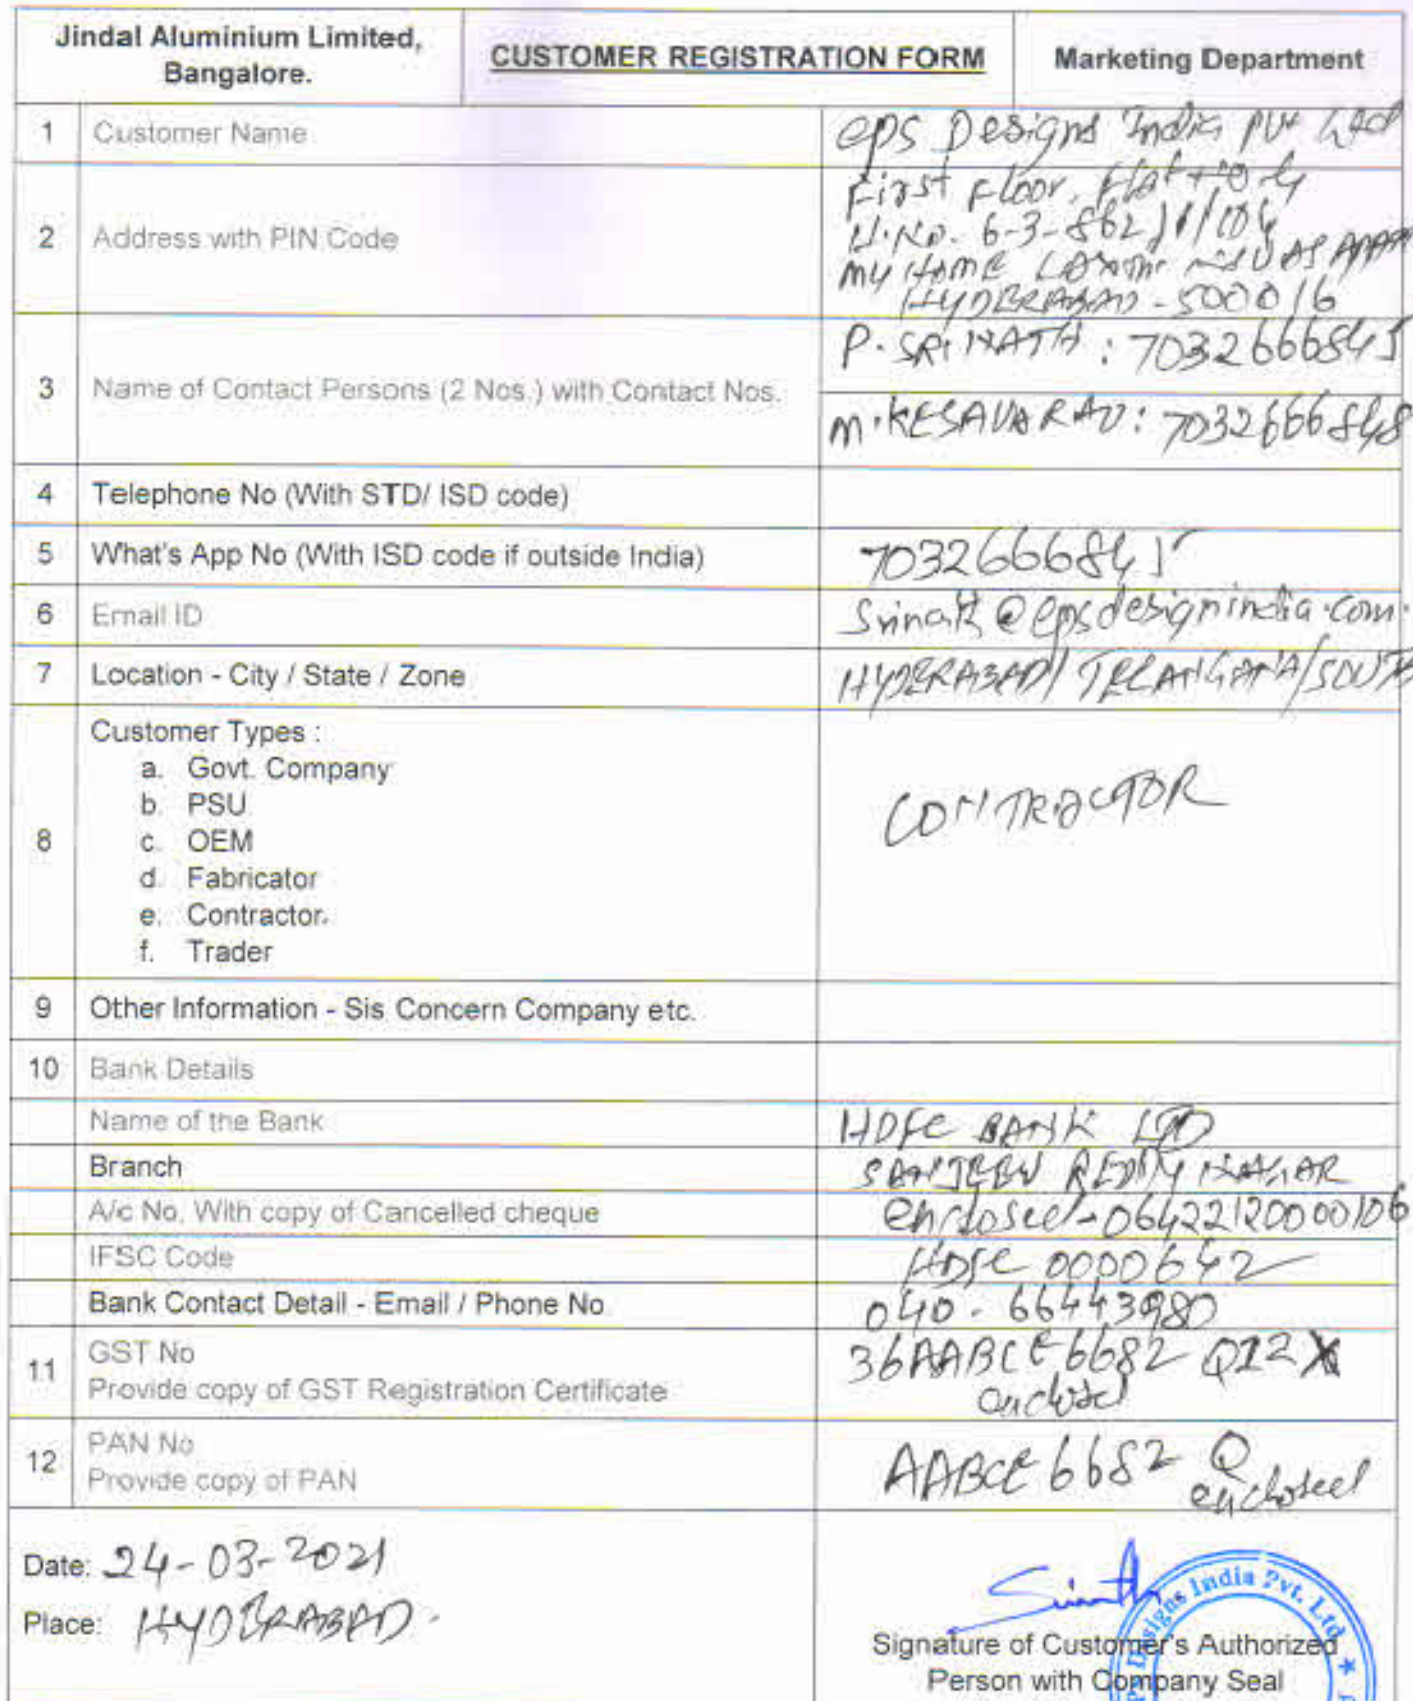 Jindal Aluminium Limited,
Bangalore.
CUSTOMER REGISTRATION FORM
Marketing Department
1 Customer Name eps Designs India Pvt Ltd
2 Address with PIN Code
First Floor, Flat No 4
H.No. 6-3-862/1/104
MY HOME
HYDERABAD - 500016
3 Name of Contact Persons (2 Nos.) with Contact Nos.
P. SRINATH : 7032666845
M. KESAVA RAO : 7032666848
4 Telephone No (With STD/ ISD code)
5 What's App No (With ISD code if outside India) 7032666845
6 Email ID Srinath@epsdesignindia.com.
7 Location - City / State / Zone HYDERABAD/ TELANGANA/SOUTH
8 Customer Types :
a. Govt. Company
b. PSU
c. OEM
d. Fabricator
e. Contractor.
f. Trader
CONTRACTOR
9 Other Information - Sis Concern Company etc.
10 Bank Details
Name of the Bank HDFC BANK LTD
Branch SANJEEV REDDY NAGAR
A/c No, With copy of Cancelled cheque enclosed - 06422120000106
IFSC Code HDFC 0000642
Bank Contact Detail - Email / Phone No 040 - 66443980
11 GST No 36AABCE6682 Q1Z X
Provide copy of GST Registration Certificate enclosed
12 PAN No AABCE 6682 Q
Provide copy of PAN enclosed
Date: 24-03-2021
Place: HYDERABAD.
Signature of Customer's Authorized
Person with Company Seal
Designs India Pvt. Ltd ★